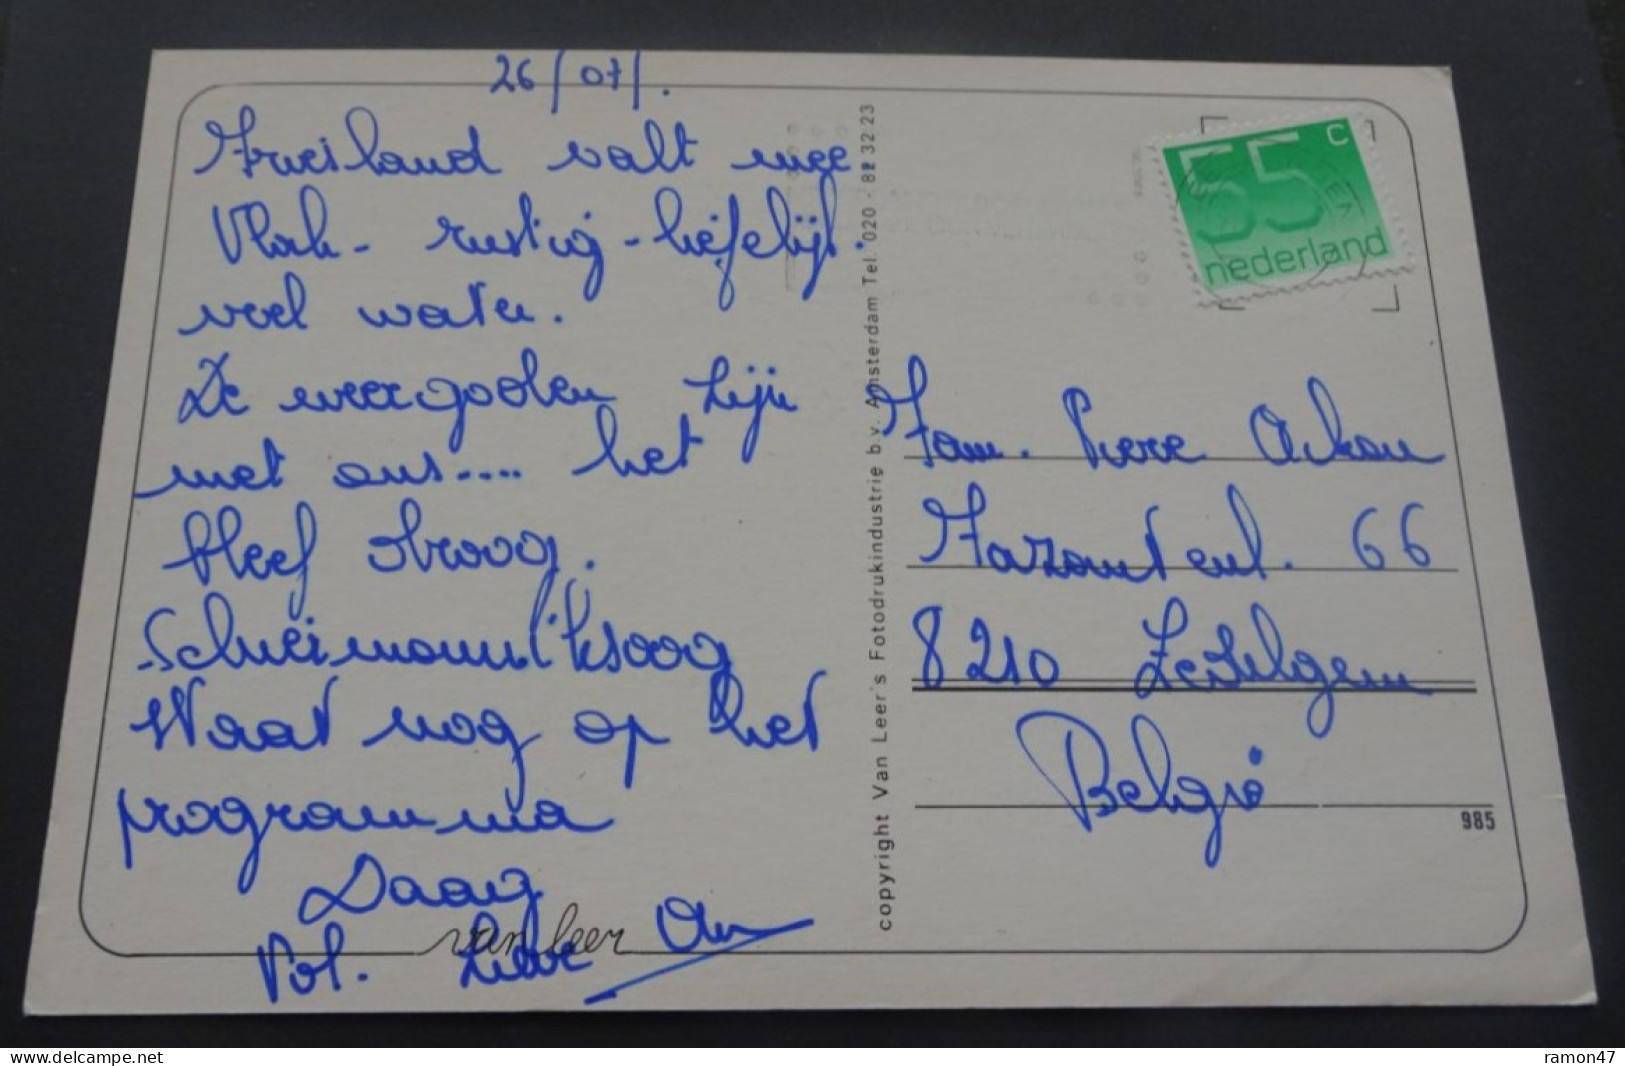 26/07/.
Friesland valt mee
Vlak - rustig - liefelijk.
veel water.
De weergoden zijn
met ons.... het
bleef droog.
Schiermonnikoog
Staat nog op het
programma
Daag
Vol. Lieve
van Leer
copyright Van Leer's Fotodrukindustrie b.v. Amsterdam Tel. 020 - 82 32 23
55 c
nederland
Fam. Pierre
66
8210 Zedelgem
België
985
www.delcampe.net
ramon47